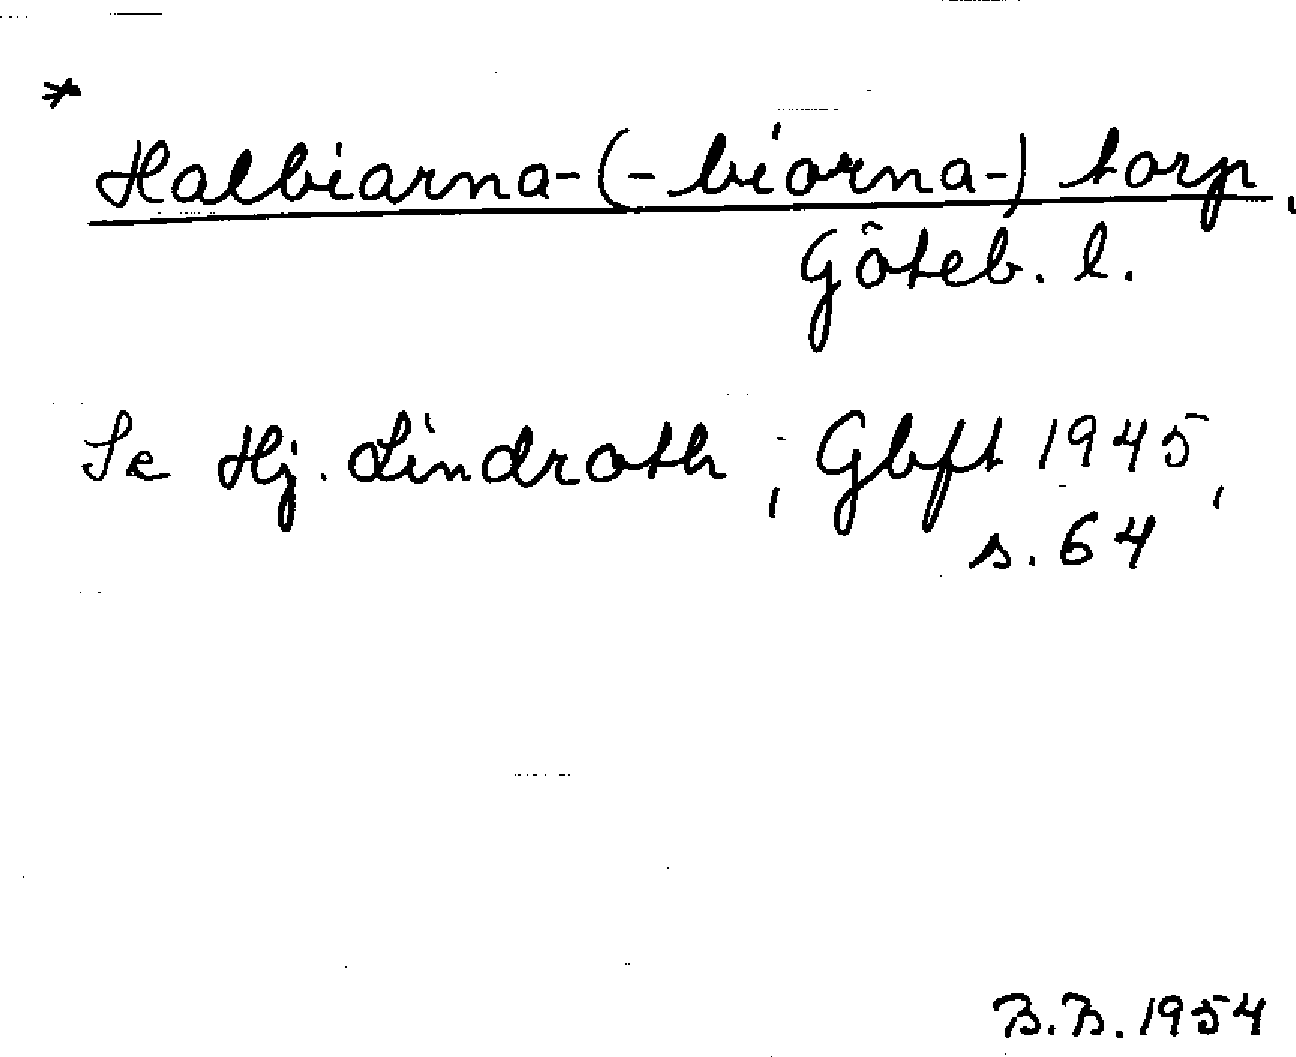 *
Halbiarna-(-biorna-) torp,
Göteb. l.
Se Hj. Lindroth, Gbft 1945,
s. 64
B.B. 1954